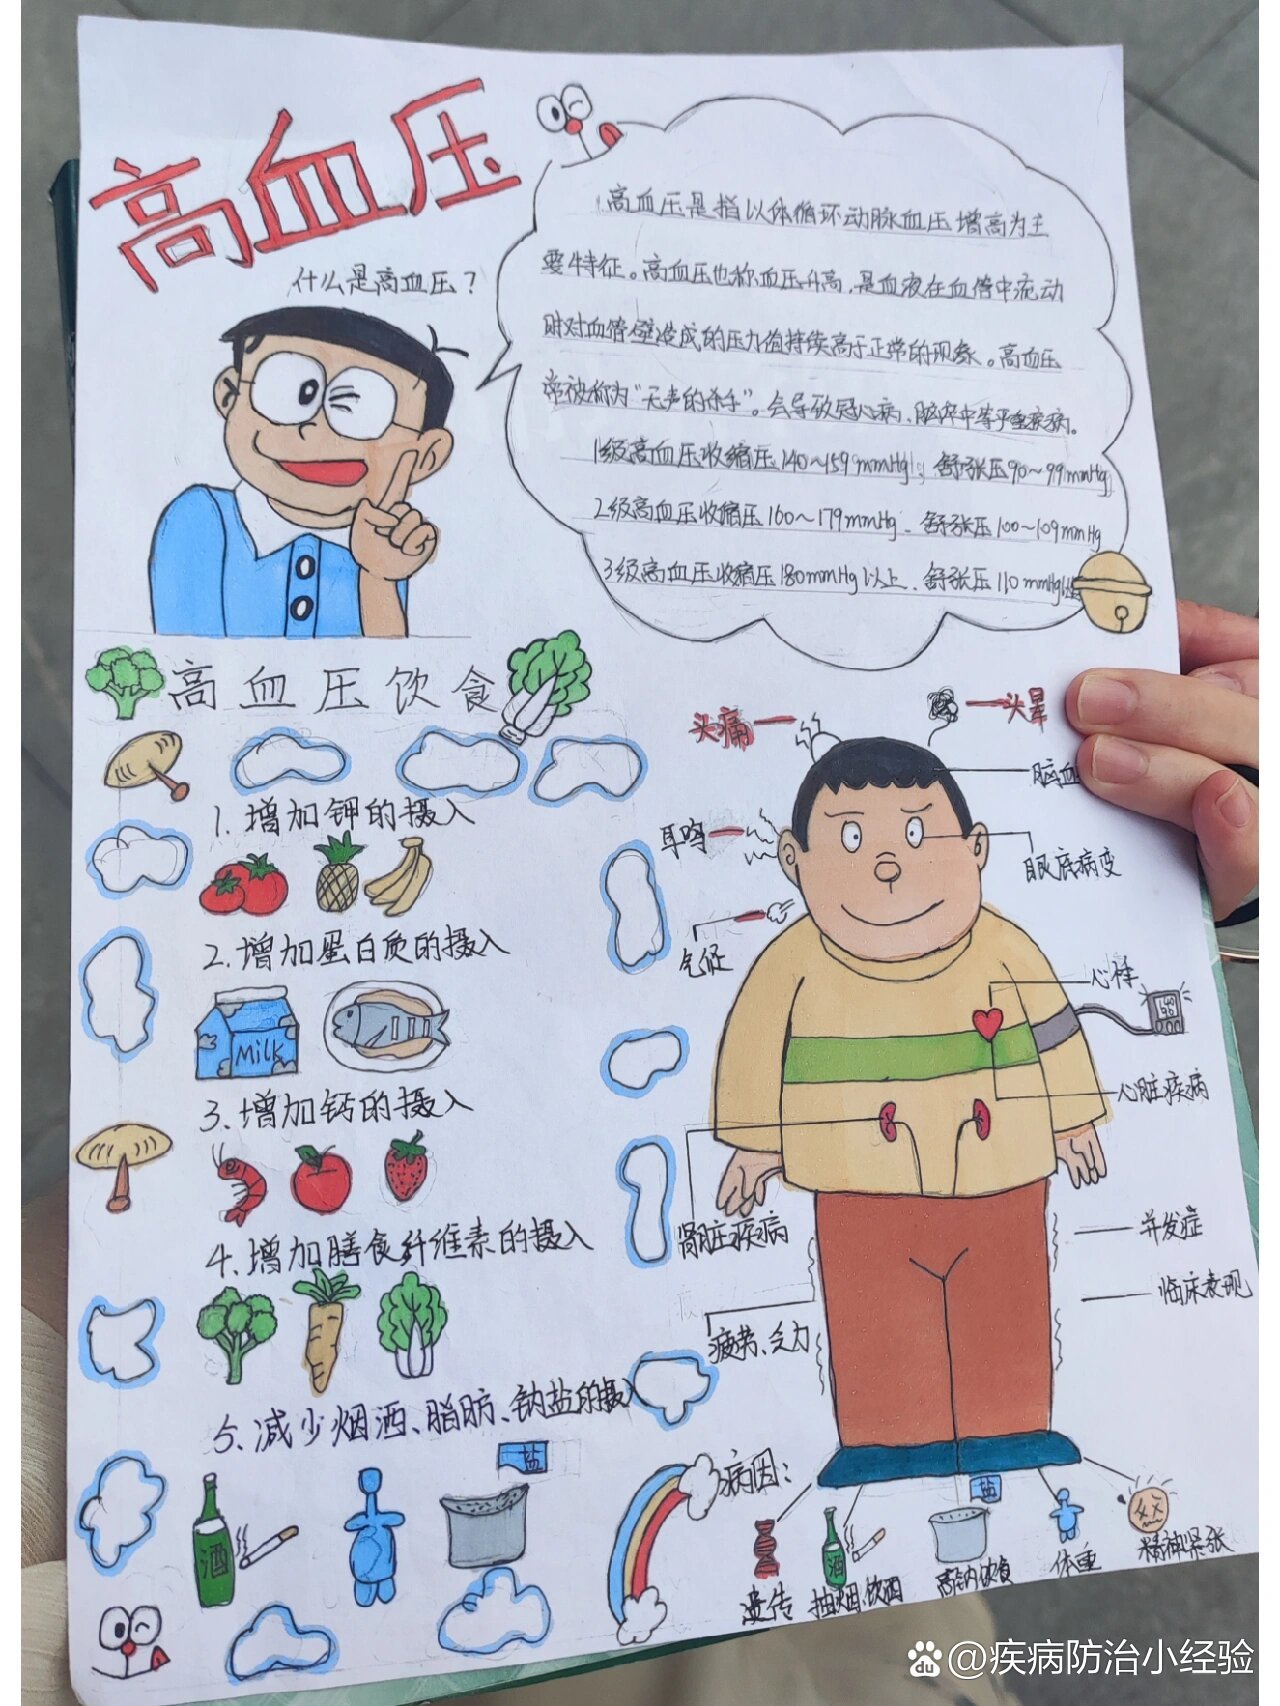 高血压
什么是高血压？
1.高血压是指以体循环动脉血压增高为主
要特征。高血压也称血压升高，是血液在血管中流动
时对血管壁造成的压力值持续高于正常的现象。高血压
常被称为“无声的杀手”。会导致冠心病、脑卒中等严重疾病。
1级高血压收缩压140~159mmHg；舒张压90~99mmHg
2级高血压收缩压160~179mmHg、舒张压100~109mmHg
3级高血压收缩压180mmHg以上、舒张压110mmHg以
高血压饮食
1.增加钾的摄入
2.增加蛋白质的摄入
Milk
3.增加钙的摄入
4.增加膳食纤维素的摄入
5.减少烟酒、脂肪、钠盐的摄入
酒
盐
头痛
头晕
脑血
耳鸣
眼底病变
气促
心悸
心脏疾病
肾脏疾病
并发症
临床表现
疲劳、乏力
病因：
酒
盐
遗传
抽烟、饮酒
高钠饮食
体重
精神紧张
Bai
du
@疾病防治小经验